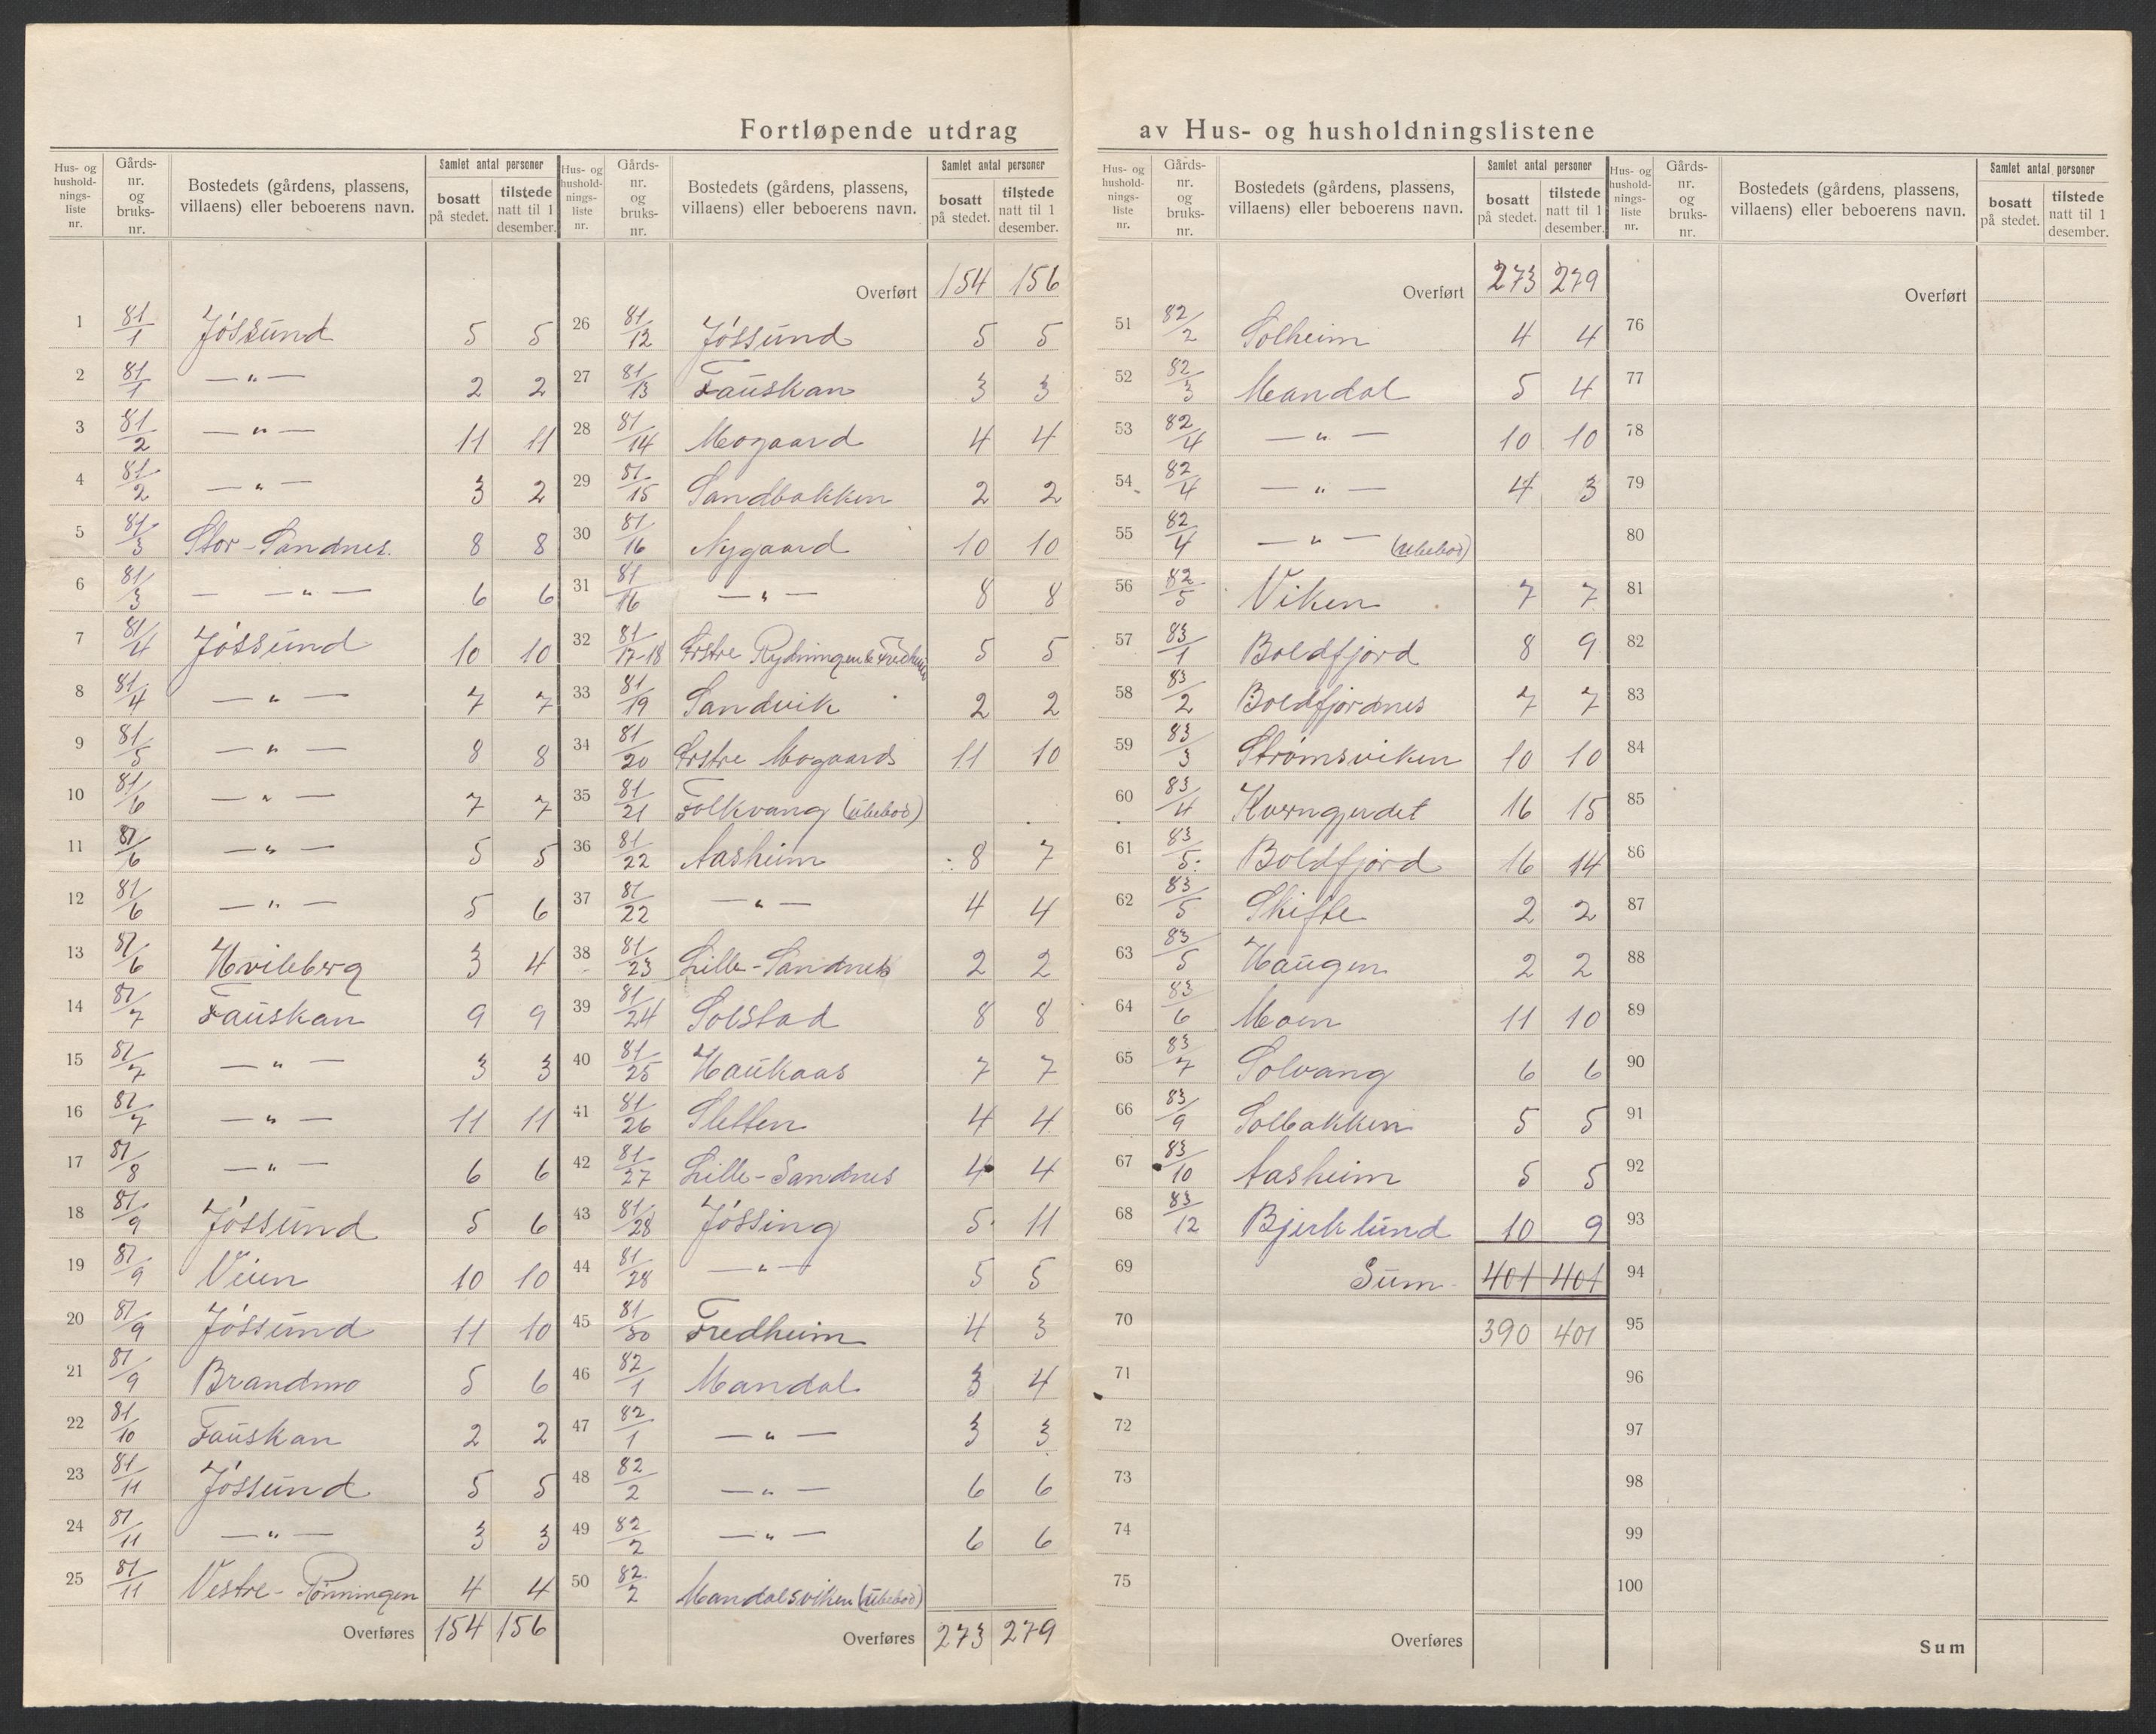 Fortløpende utdrag av Hus- og husholdningslistene
Hus- og hushold-nings-liste nr. | Gårds-nr. og bruks-nr. | Bostedets (gårdens, plassens, villaens) eller beboerens navn. | Samlet antal personer | bosatt på stedet. | tilstede natt til 1 desember.
1 81/1 Jóssund 5 5
2 81/1 — „ — 2 2
3 81/2 — „ — 11 11
4 81/2 — „ — 3 2
5 81/3 Stor-Sandnes. 8 8
6 81/3 — — „ — 6 6
7 81/4 Jóssund 10 10
8 81/4 — „ — 7 7
9 81/5 — „ — 8 8
10 81/6 — „ — 7 7
11 81/6 — „ — 5 5
12 81/6 — „ — 5 6
13 81/6 Hvileberg 3 4
14 81/7 Fauskan 9 9
15 81/7 — „ — 3 3
16 81/7 — „ — 11 11
17 81/8 — „ — 6 6
18 81/9 Jóssund 5 6
19 81/9 Veien 10 10
20 81/9 Jóssund 11 10
21 81/9 Brandmo 5 6
22 81/10 Fauskan 2 2
23 81/11 Jóssund 5 5
24 81/11 — „ — 3 3
25 81/11 Vestre-Rønningen 4 4
Overføres 154 156
Hus- og hushold-nings-liste nr. | Gårds-nr. og bruks-nr. | Bostedets (gårdens, plassens, villaens) eller beboerens navn. | Samlet antal personer | bosatt på stedet. | tilstede natt til 1 desember.
Overført 154 156
26 81/12 Jóssund 5 5
27 81/13 Fauskan 3 3
28 81/14 Mogaard 4 4
29 81/15 Sandbakken 2 2
30 81/16 Nygaard 10 10
31 81/16 — „ — 8 8
32 81/17-18 Østre Rydningen & Fredheim 5 5
33 81/19 Sandvik 2 2
34 81/20 Østre Mogaard 11 10
35 81/21 Folkvang (ubebod)
36 81/22 Aasheim 8 7
37 81/22 — „ — 4 4
38 81/23 Lille-Sandnes 2 2
39 81/24 Solstad 8 8
40 81/25 Haukaas 7 7
41 81/26 Sletten 4 4
42 81/27 Lille-Sandnes 4 4
43 81/28 Jóssing 5 11
44 81/28 — „ — 5 5
45 81/30 Fredheim 4 3
46 82/1 Mandal 3 4
47 82/1 — „ — 3 3
48 82/2 — „ — 6 6
49 82/2 — „ — 6 6
50 82/2 Mandalsviken (Ubebod)
Overføres 273 279
Hus- og hushold-nings-liste nr. | Gårds-nr. og bruks-nr. | Bostedets (gårdens, plassens, villaens) eller beboerens navn. | Samlet antal personer | bosatt på stedet. | tilstede natt til 1 desember.
Overført 273 279
51 82/2 Solheim 4 4
52 82/3 Mandal 5 4
53 82/4 — „ — 10 10
54 82/4 — „ — 4 3
55 82/4 — „ — (Ubebod)
56 82/5 Viken 7 7
57 83/1 Boldfjord 8 9
58 83/2 Boldfjordnes 7 7
59 83/3 Strømsviken 10 10
60 83/4 Kverngjerdet 16 15
61 83/5 Boldfjord 16 14
62 83/5 Skifte 2 2
63 83/5 Haugen 2 2
64 83/6 Moen 11 10
65 83/7 Solvang 6 6
66 83/9 Solbakken 5 5
67 83/10 Aasheim 5 5
68 83/12 Bjerklund 10 9
69 Sum 401 401
70 390 401
71
72
73
74
75
Overføres
Hus- og hushold-nings-liste nr. | Gårds-nr. og bruks-nr. | Bostedets (gårdens, plassens, villaens) eller beboerens navn. | Samlet antal personer | bosatt på stedet. | tilstede natt til 1 desember.
Overført
76
77
78
79
80
81
82
83
84
85
86
87
88
89
90
91
92
93
94
95
96
97
98
99
100
Sum